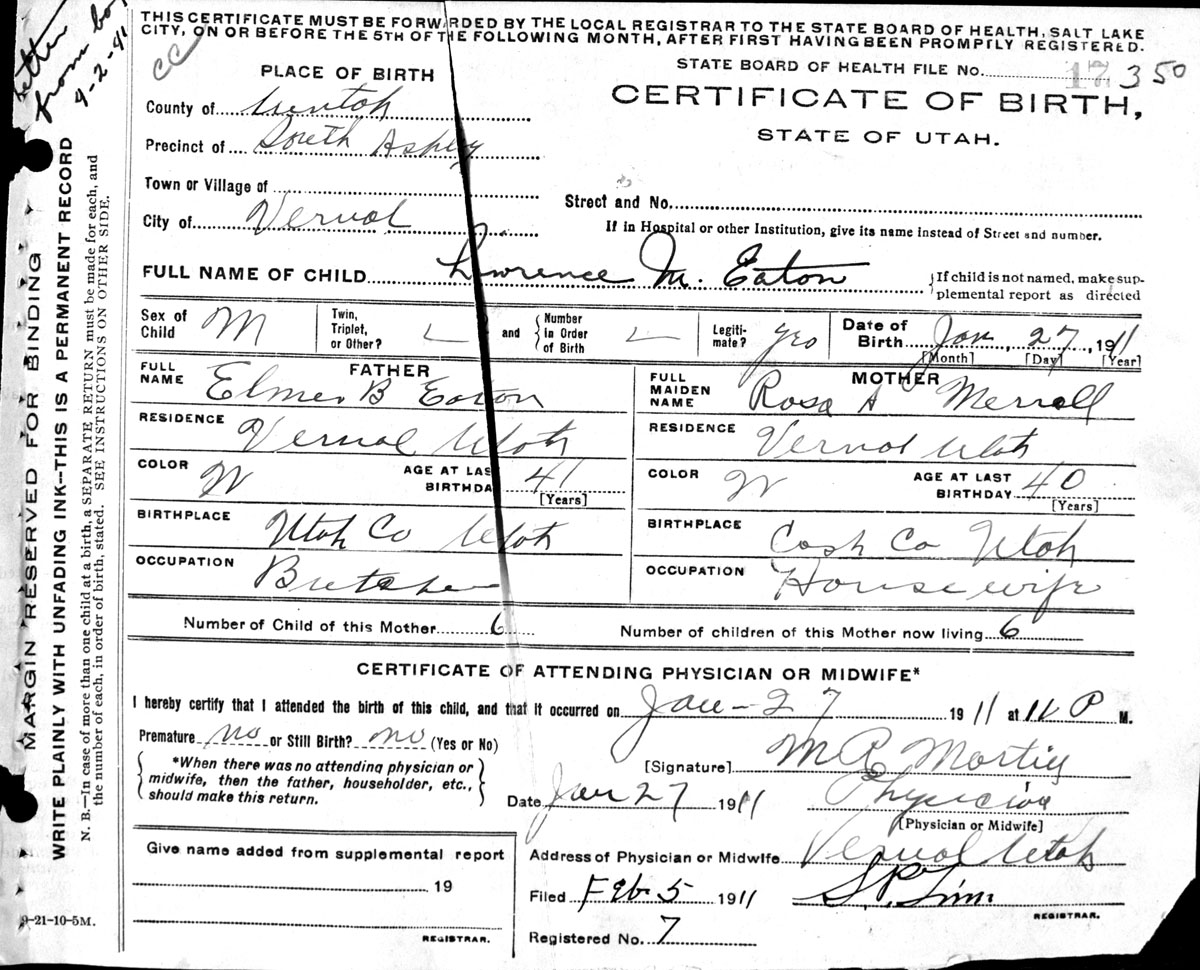 Letter
from bo
9-2-41
CC
THIS CERTIFICATE MUST BE FORWARDED BY THE LOCAL REGISTRAR TO THE STATE BOARD OF HEALTH, SALT LAKE
CITY, ON OR BEFORE THE 5TH OF THE FOLLOWING MONTH, AFTER FIRST HAVING BEEN PROMPTLY REGISTERED.
PLACE OF BIRTH
STATE BOARD OF HEALTH FILE No. 17 350
County of Uintah
CERTIFICATE OF BIRTH,
STATE OF UTAH.
Precinct of South Ashley
Town or Village of
Street and No.
City of Vernal
If in Hospital or other Institution, give its name instead of Street and number.
FULL NAME OF CHILD Lawrence M. Eaton
If child is not named, make sup-
plemental report as directed
Sex of Child M
Twin, Triplet, or Other?
and
Number in Order of Birth
Legiti-mate? yes
Date of Birth Jan, 27, 1911
[Month] [Day] [Year]
FATHER
FULL NAME Elmer B Eaton
RESIDENCE Vernal Utah
COLOR W
AGE AT LAST BIRTHDAY 41
[Years]
BIRTHPLACE Utah Co Utah
OCCUPATION Butcher
MOTHER
FULL MAIDEN NAME Rosa A Merrell
RESIDENCE Vernal Utah
COLOR W
AGE AT LAST BIRTHDAY 40
[Years]
BIRTHPLACE Cash Co Utah
OCCUPATION Housewife
Number of Child of this Mother 6
Number of children of this Mother now living 6
CERTIFICATE OF ATTENDING PHYSICIAN OR MIDWIFE*
I hereby certify that I attended the birth of this child, and that it occurred on Jan - 27 1911 at P M.
Premature no or Still Birth? no (Yes or No)
*When there was no attending physician or
midwife, then the father, householder, etc.,
should make this return.
[Signature] M
Date Jan 27 1911 Physician
[Physician or Midwife]
Give name added from supplemental report
19
REGISTRAR.
Address of Physician or Midwife Vernal Utah
Filed Feb 5 1911 S.P.
REGISTRAR.
Registered No. 7
9-21-10-5M.
MARGIN RESERVED FOR BINDING
WRITE PLAINLY WITH UNFADING INK--THIS IS A PERMANENT RECORD
N. B.—In case of more than one child at a birth, a SEPARATE RETURN must be made for each, and
the number of each, in order of birth, stated. SEE INSTRUCTIONS ON OTHER SIDE.